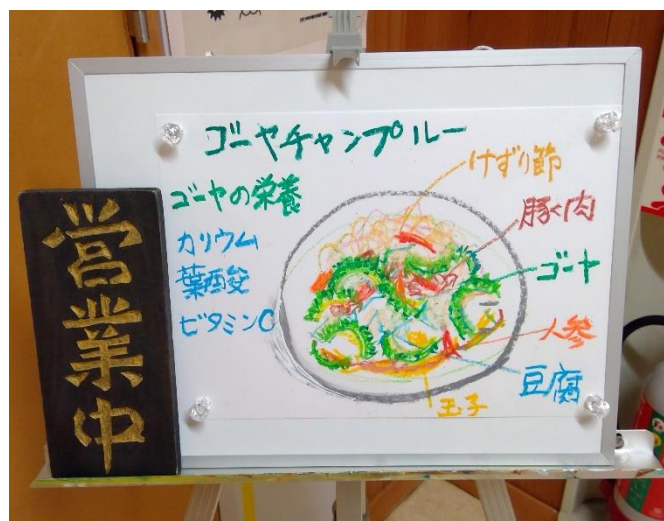 ゴーヤチャンプルー
ゴーヤの栄養
カリウム
葉酸
ビタミンC
けずり節
豚く肉
ゴーヤ
人参
豆腐
玉子
営業中